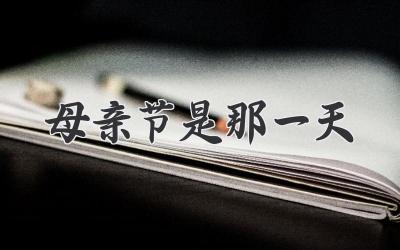 母亲节是那一天